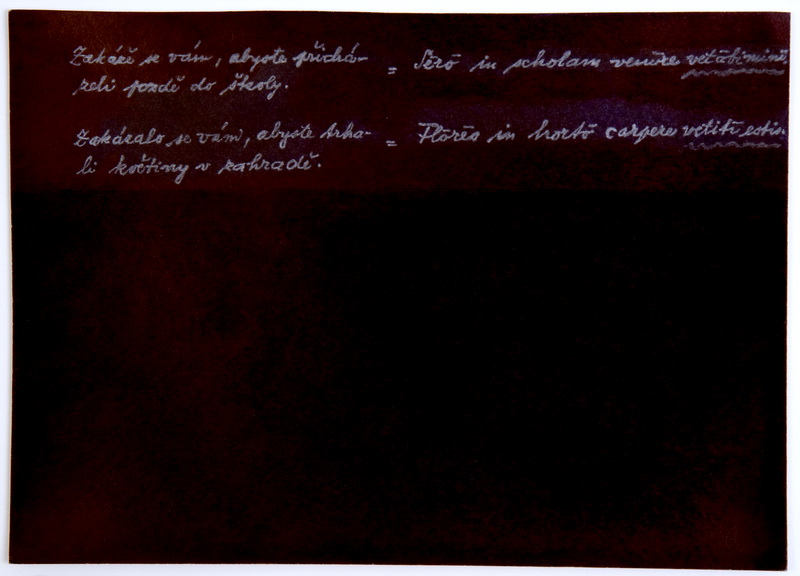 Zakáže se vám, abyste přichá- = Sērō in scholam venīre vetābiminī.
zeli pozdě do školy.
Zakázalo se vám, abyste trha- = Flōrēs in hortō carpere vetitī estis.
li květiny v zahradě.